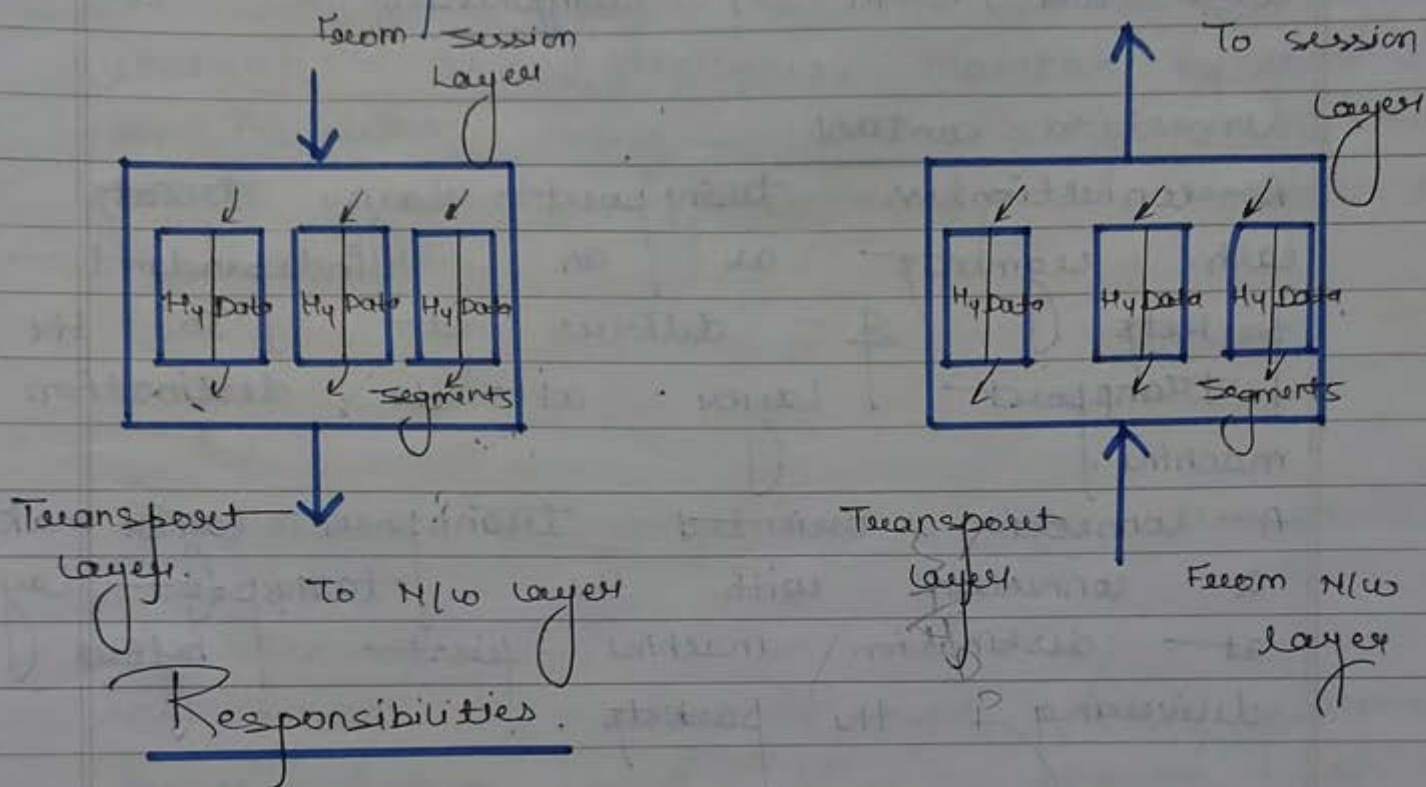 From session
Layer
H4 Data H4 Data H4 Data
segments
Transport
Layer.
To N/w layer
To session
layer
H4 Data H4 Data H4 Data
segments
Transport
layer
From N/w
layer
Responsibilities.